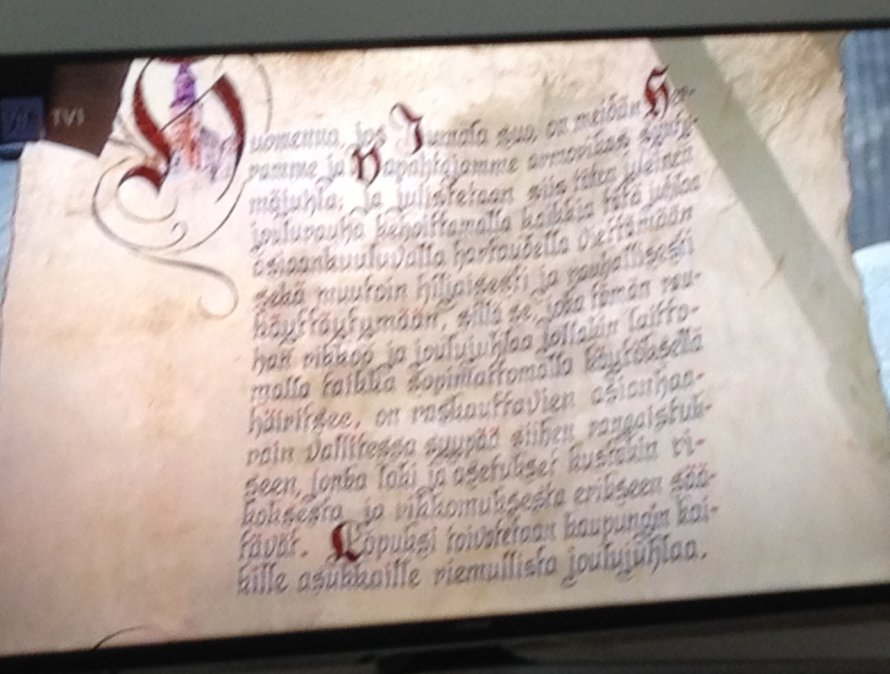 TV1
Huomenna, jos Jumala suo, on meidän Her-
ramme ja Vapahtajamme armorikas synty-
mäjuhla; ja julistetaan siis täten yleinen
joulurauha kehoittamalla kaikkia tätä juhlaa
asiaankuuluvalla hartaudella viettämään
sekä muutoin hiljaisesti ja rauhallisesti
käyttäytymään, sillä se, joka tämän rau-
han rikkoo ja joulujuhlaa jollakin laitto-
malla taikka sopimattomalla käytöksellä
häiritsee, on raskauttavien asianhaa-
rain vallitessa syypää siihen rangaistuk-
seen, jonka laki ja asetukset kustakin ri-
koksesta ja rikkomuksesta erikseen sää-
tävät. Lopuksi toivotetaan kaupungin kai-
kille asukkaille riemullista joulujuhlaa.